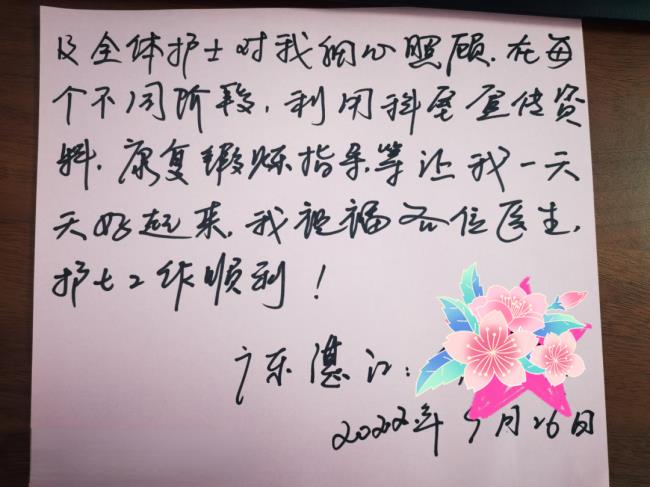 及全体护士对我细心照顾.在每
个不同阶段,利用科室宣传资
料.康复锻炼指导等让我一天
天好起来.我祝福各位医生,
护士工作顺利!
广东湛江:
2022年9月26日